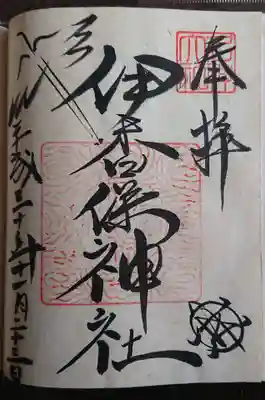 奉拝
伊香保神社
平成三十年十一月二十三日